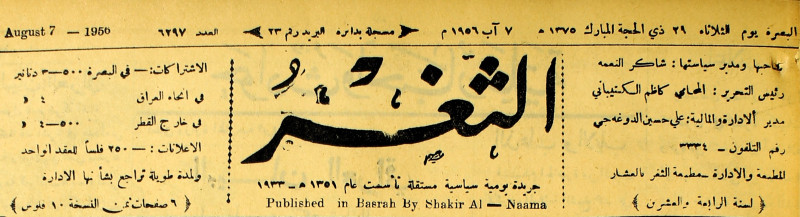 البصرة يوم الثلاثاء ٢٩ ذي الحجة المبارك ١٣٧٥ هـ ٧ آب ١٩٥٦ م مسجلة بدائرة البريد رقم ٢٣ العدد ٦٢٩٧ August 7 - 1956
صاحبها ومدير سياستها : شاكر النعمه
رئيس التحرير : المحامي كاظم الكشيباني
مدير الادارة والمالية : علي حسين الدوغه جي
رقم التلفون – ٣٣٣٤
المطبعة والادارة – مطبعة الثغر بالعشار
( لسنة الرابعة والعشرين )
الثغر
جريدة يومية سياسية مستقلة تأسست عام ١٣٥١ هـ - ١٩٣٣
Published in Basrah By Shakir Al – Naama
الاشتراكات :– في البصرة ٥٠٠–٣ دنانير
في انحاء العراق ٤ د
في خارج القطر ٥٠٠–٤ د
الاعلانات :– ٢٥٠ فلساً للعقد لواحد
ولمدة طويلة تراجع بشأنها الادارة
( ٦ صفحات ثمن النسخة ١٠ فلوس )